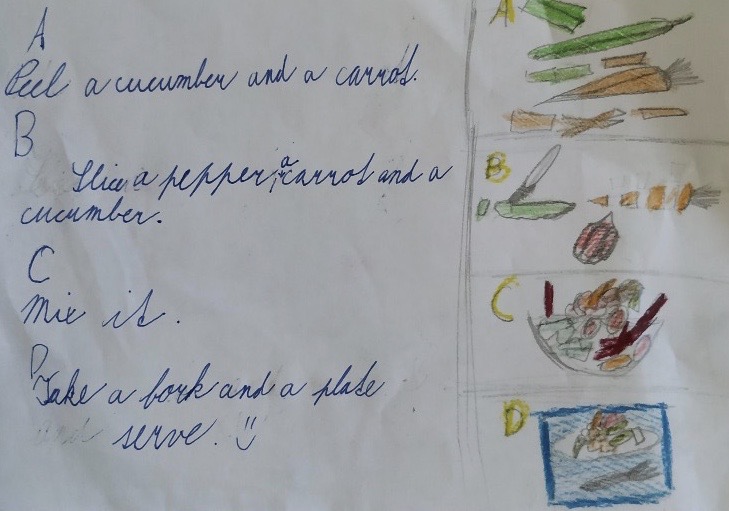 A
Peel a cucumber and a carrot.
B
Slice a pepper, a carrot and a
cucumber.
C
Mix it.
D
Take a fork and a plate
and serve. :)
A
B
C
D